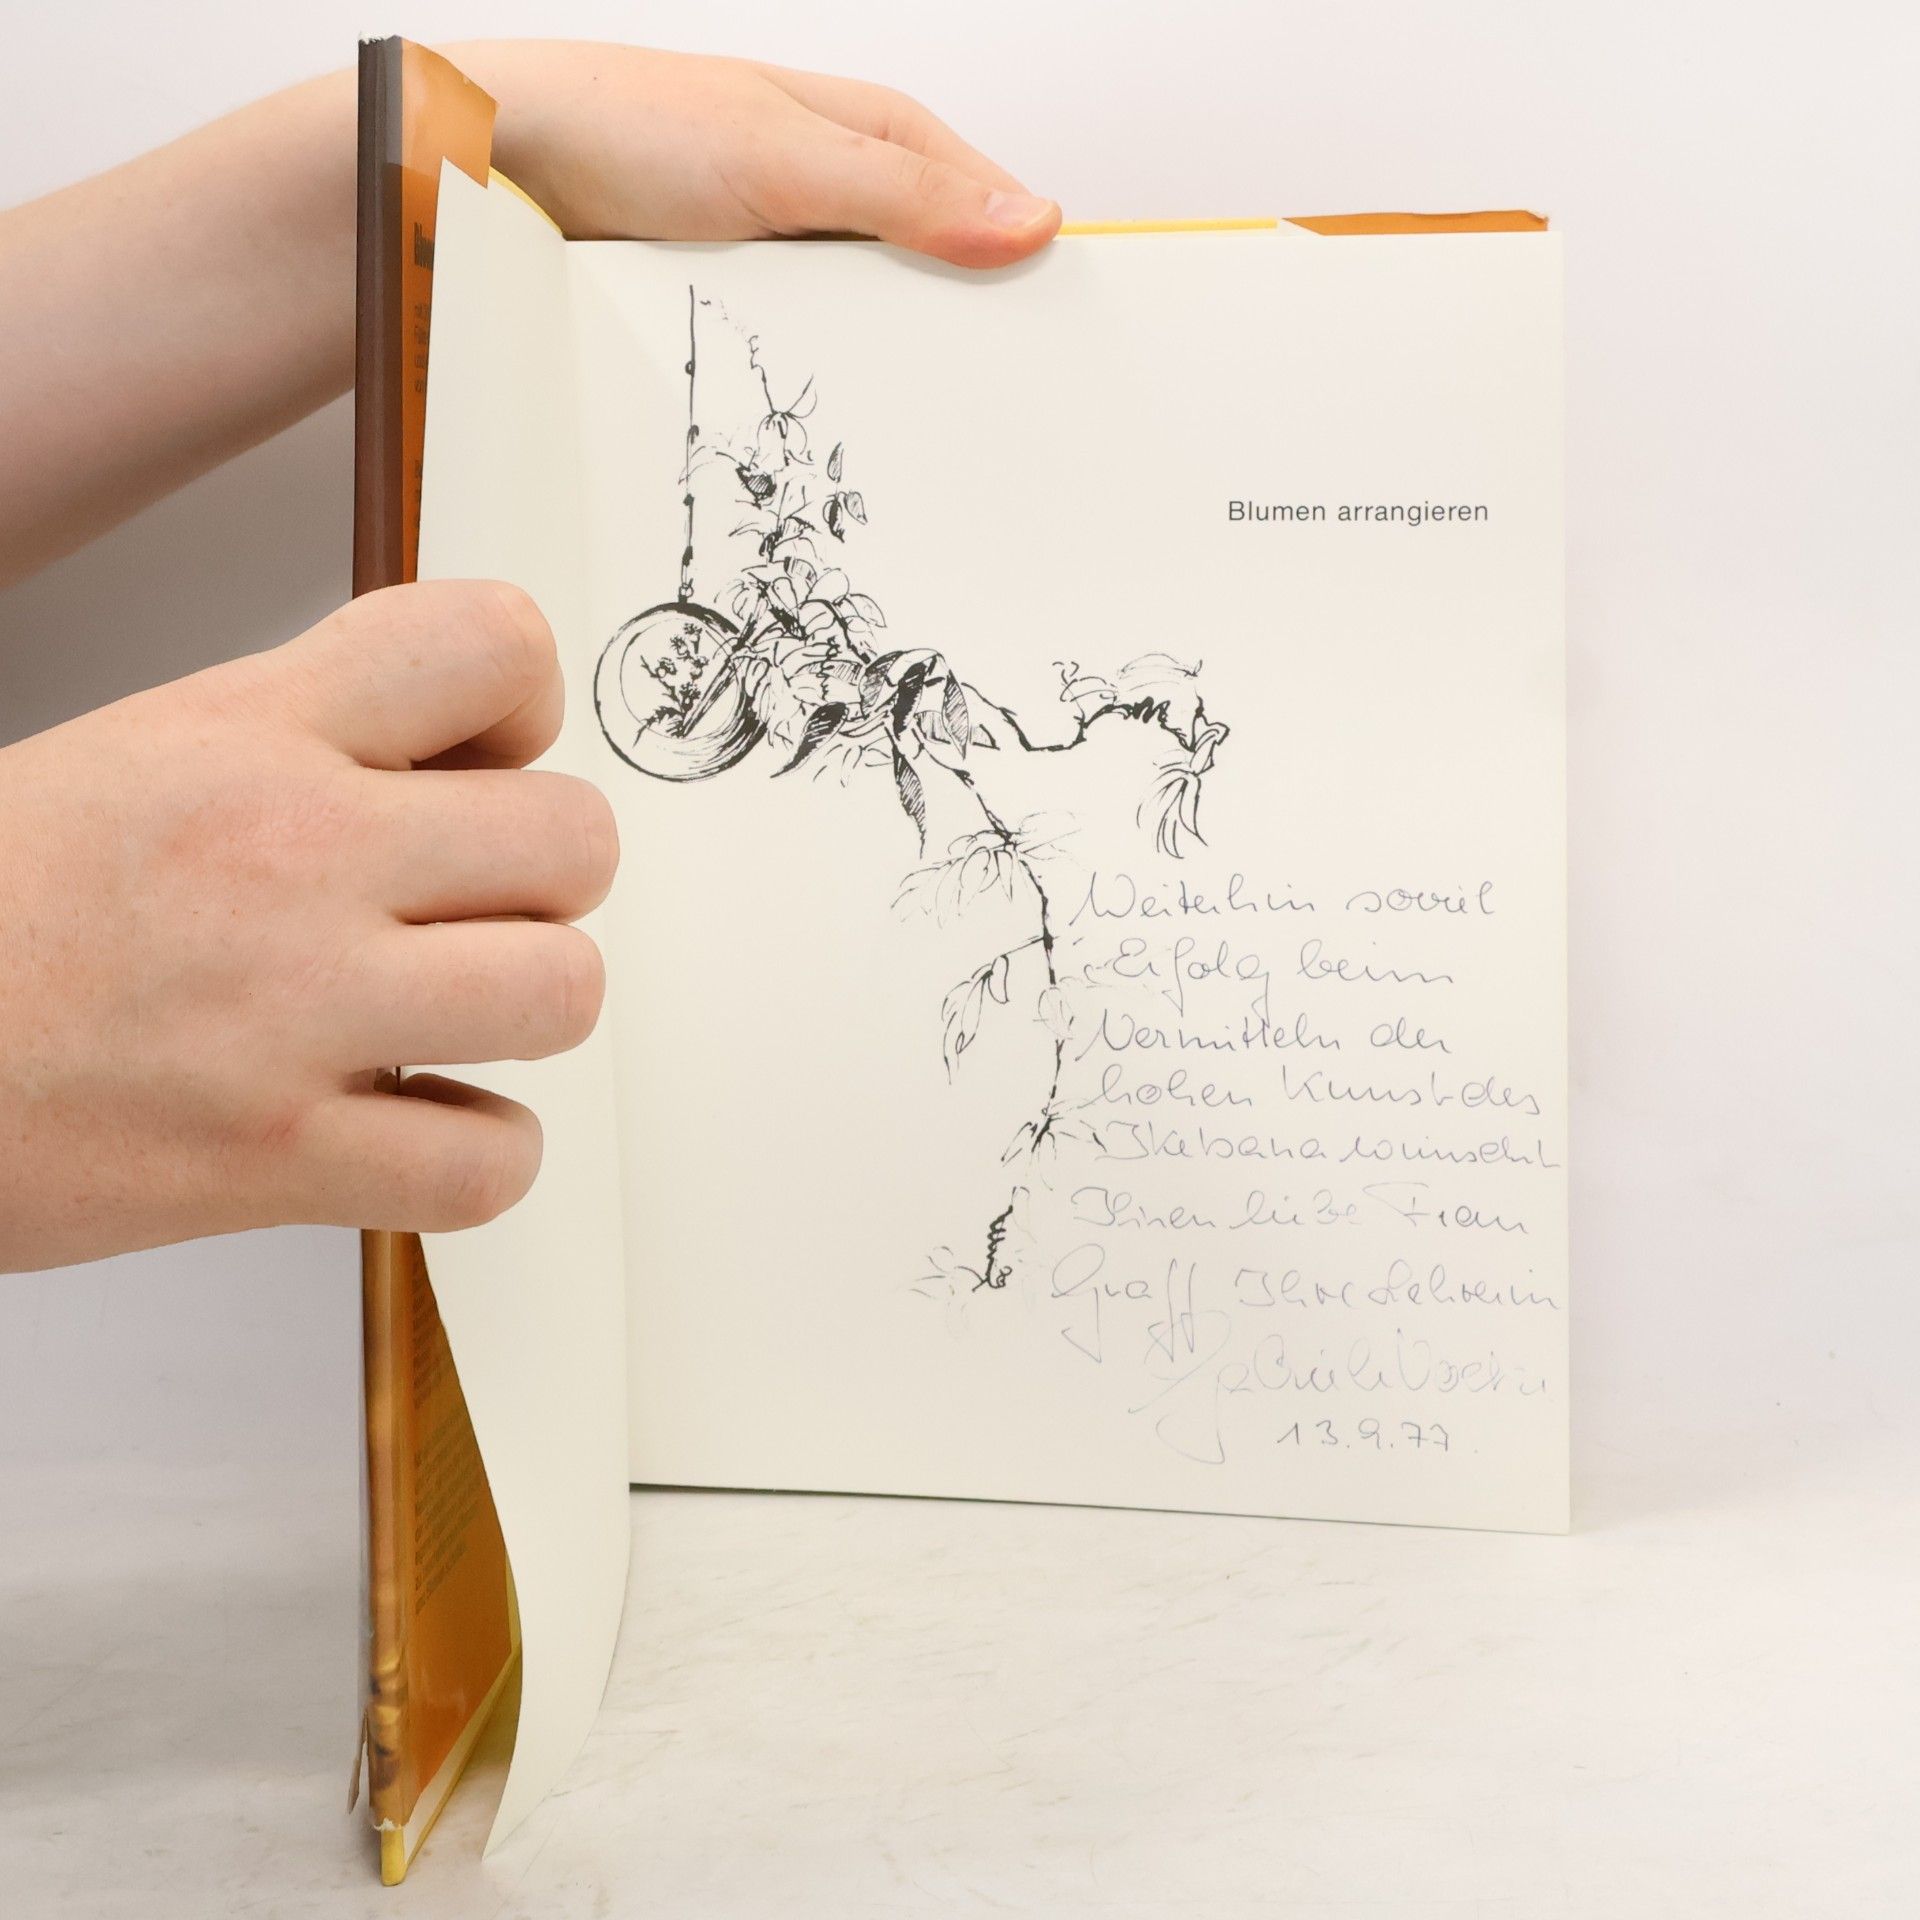 Blumen arrangieren
Weiterhin soviel
Erfolg beim
Vermitteln der
hohen Kunst des
Ikebana wünscht
Ihnen liebe Frau
Graff Ihre Lehrerin
13.9.77.